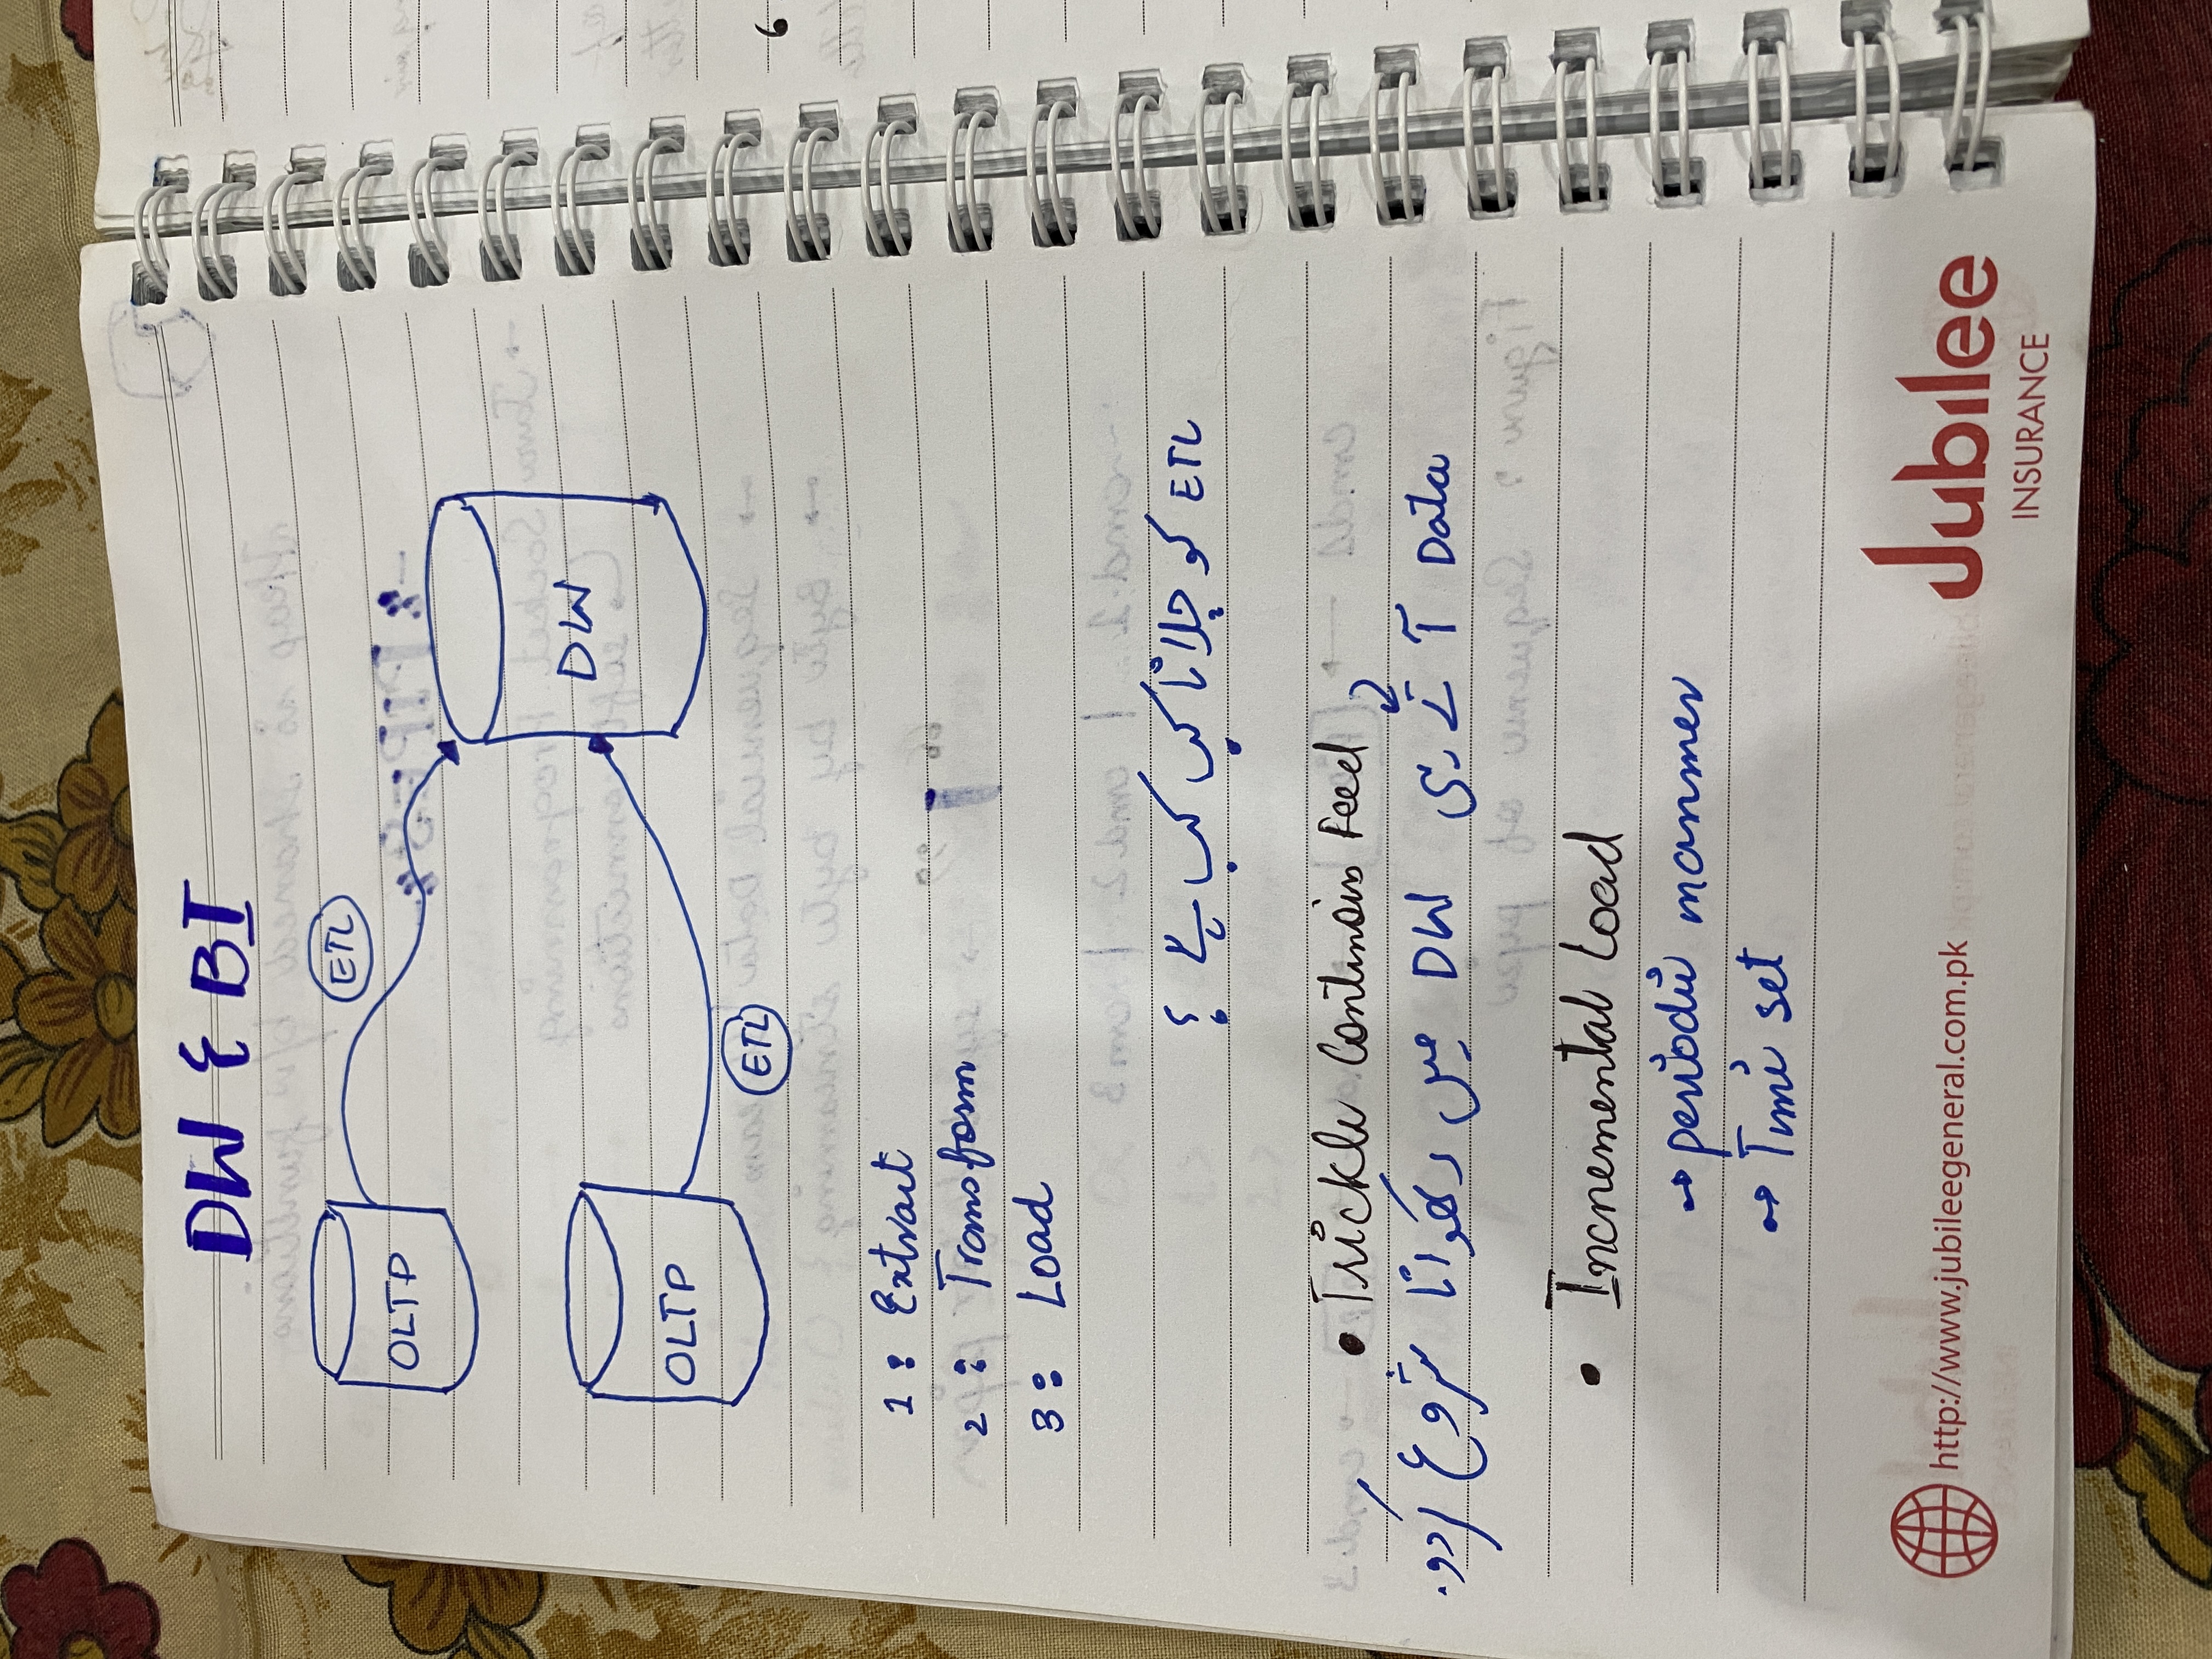 DW & BI
ETL
OLTP
DW
OLTP
ETL
1: Extract
2: Transform
3: Load
ETL کو چلانا کب کب ہے ؟
• Trickle Continois Feed
Data آتے ہی DW میں رکھوانا شروع کردو.
• Incremental Load
→ periodic manner
→ Time set
http://www.jubileegeneral.com.pk
Jubilee
INSURANCE